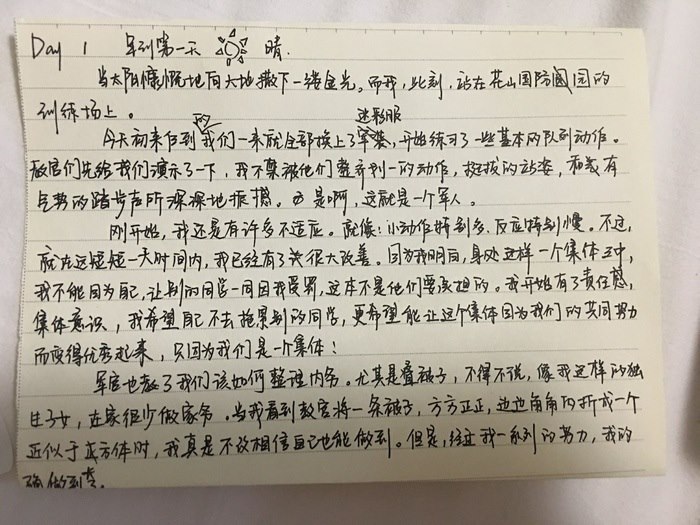 Day 1 军训第一天 晴.
当太阳慷慨地向大地撒下一缕金光。而我,此刻,站在花山国防园的
训练场上。
的 迷彩服
今天初来乍到我们一来就全部换上了,开始练习了一些基本的队列动作。
教官们先给我们演示了一下,我不禁被他们整齐划一的动作,挺拔的站姿,和
气势的踏步声所深深地振撼。是啊,这就是一个军人。
刚开始,我还是有许多不适应。就像:小动作特别多,反应特别慢。不过,
就在这短短一天时间内,我已经有了很大改善。因为我明白,身处这样一个集体之中,
我不能因为自己,让别的同学一同因我受罚,这本不是他们要承担的。我开始有了责任感,
集体意识,我希望自己不去拖累别的同学,更希望能让这个集体因为我们的共同努力
而变得优秀起来,只因为我们是一个集体!
军官也教了我们该如何整理内务。尤其是叠被子,不得不说,像我这样的独
生子女,在家很少做家务。当我看到教官将一条被子,方方正正,边边角角的折成一个
近似于正方体时,我真是不敢相信自己也能做到。但是,经过我一系列的努力,我的
确做到